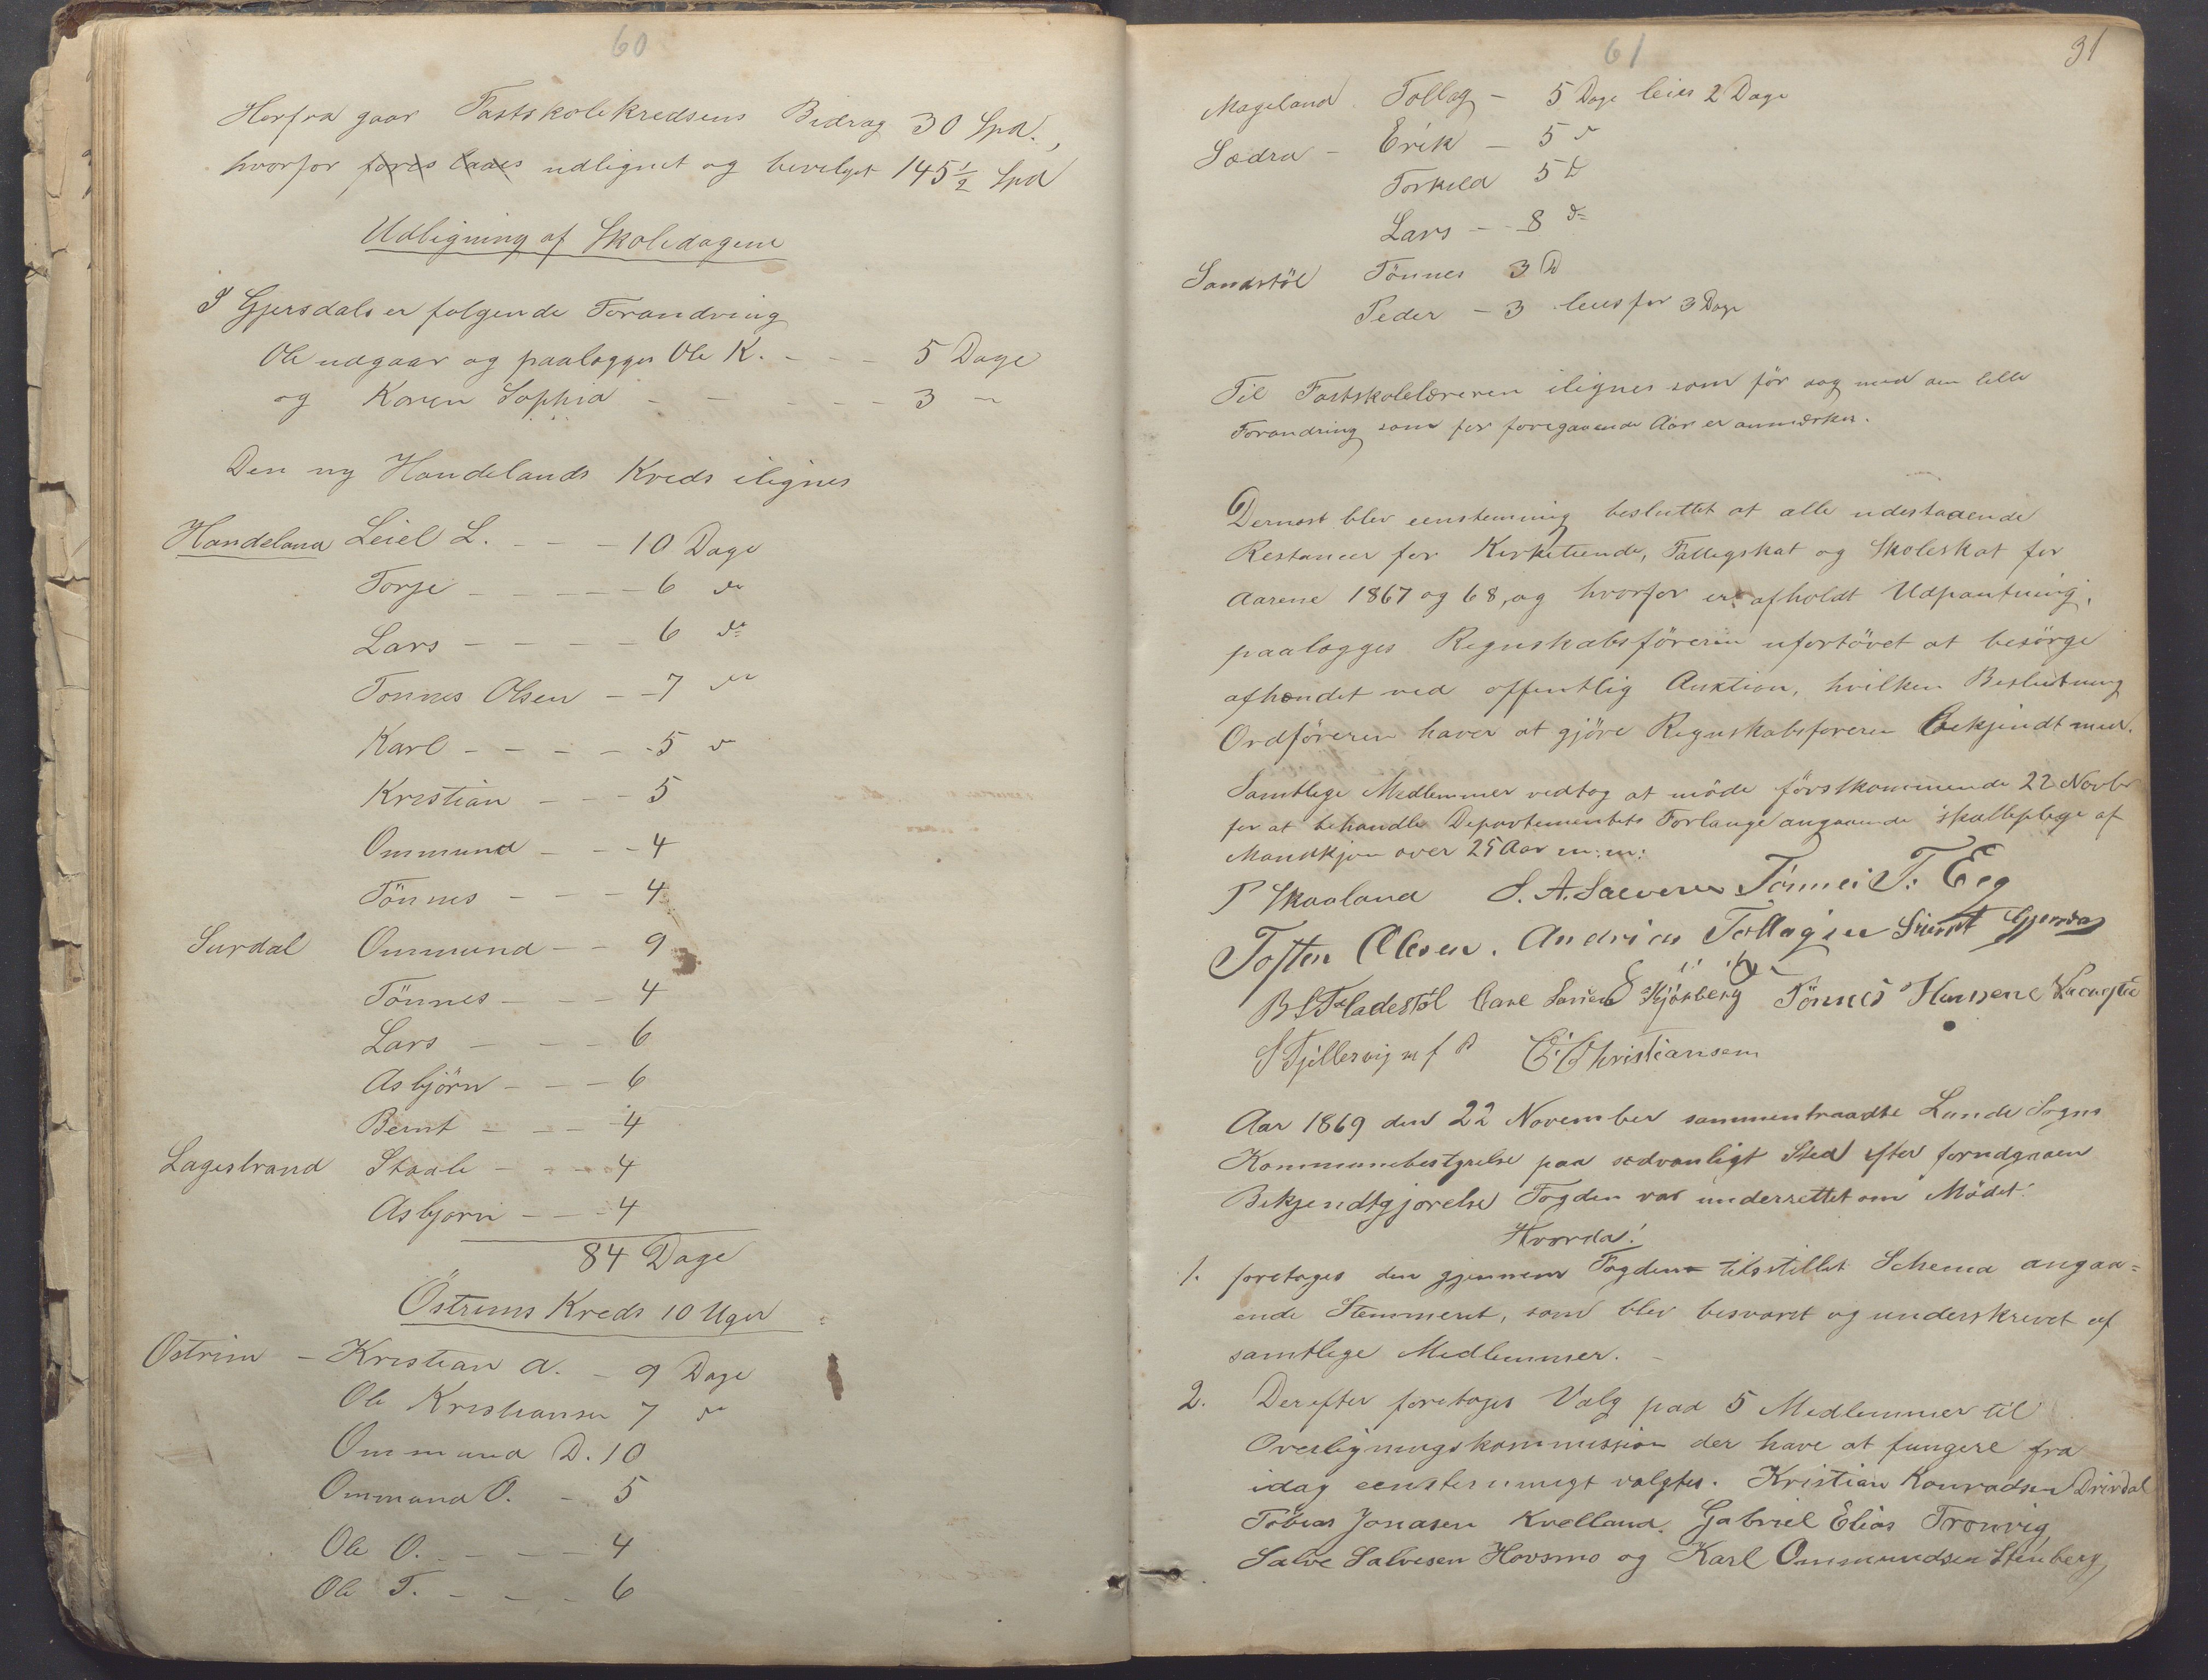 60
Herfra gaar Fastskolekredsens Bidrag 30 Spd.,
hvorfor føres udlignet og bevilget 145 1/2 Spd
Udligning af Skoledagene
I Gjersdals er følgende Forandring
Ole udgaar og paalægges Ole K. - - - 5 Dage
og Karen Sophia - - - - - 3 -
Den ny Handelands Kreds ilignes
Handeland Leiel L. - - - 10 Dage
Torje - - - - - 6 do
Lars - - - - - 6 do
Tønnes Olsen - - 7 do
Karl - - - - - 5 do
Kristian - - - 5
Ommund - - - 4
Tönnes - - - 4
Surdal Ommund - - 9
Tönnes - - - 4
Lars - - - 6
Asbjörn - - - 6
Bernt - - - 4
Lagestrand Staale - - - 4
Asbjørn - - - 4
84 Dage
Östrems Kreds 10 Uger
Ostrim - Kristian A. - 9 Dage
Ole Kristiansen 7 do
Ommund D. 10
Ommund O. - 5
Ole O. - - - - 4
Ole T. - - - - 6
61
31
Mageland Tollag - 5 Dage leies 2 Dage
Sædra - Erik - 5 do
Torkild 5 D
Lars - - 8 do
Sandstöl Tönnes 3 D
Peder - 3 leies for 3 Dage
Til Fastskolelæreren ilignes som för dog med den lille
Forandring som for foregaaende Aar er anmærket.
Dernæst blev eenstemmig besluttet at alle udestaaende
Restancer for Kirketiende, Fattigskat og Skoleskat for
Aarene 1867 og 68, og hvorfor er afholdt Udpantning,
paalægges Regnskabsföreren ufortövet at besörge
afhændet ved offentlig Auktion, hvilken Beslutning
Ordföreren haver at gjöre Regnskabsføreren bekjendt med.
Samtlige Medlemmer vedtog at möde förstkommende 22 Novbr
for at behandle Departementets Forlange angaaende
Mandkjøn over 25 Aar m: m:
P Skaaland S. A. Saevere Tönnes T. Eeg
Tosten Olesen. Andreas Tollagsen Sivert Gjersdal
B S Fladestöl Carl Larsen Skjönberg Tönnes Hansene
S Fjellervig m f P E. Christiansen
Aar 1869 den 22 November sammentraadte Lunde Sogns
Kommunebestyrelse paa sædvanligt Sted efter forudgaaen
Bekjendtgjørelse Fogden var underrettet om Mödet.
Hvorda!
1. foretoges den gjennem Fogden tilstillet Schema angaa=
ende Stemmeret, som blev besvaret og underskrevet af
samtlige Medlemmer. -
2. Derefter foretoges Valg paa 5 Medlemmer til
Overligningskommission der have at fungere fra
idag eenstemmigt valgtes. Kristian Konradsen Drivdal
Tobias Jonasen Kvelland. Gabriel Elias Tronvig,
Salve Salvesen Hovsmo og Karl Ommundsen Stenberg,